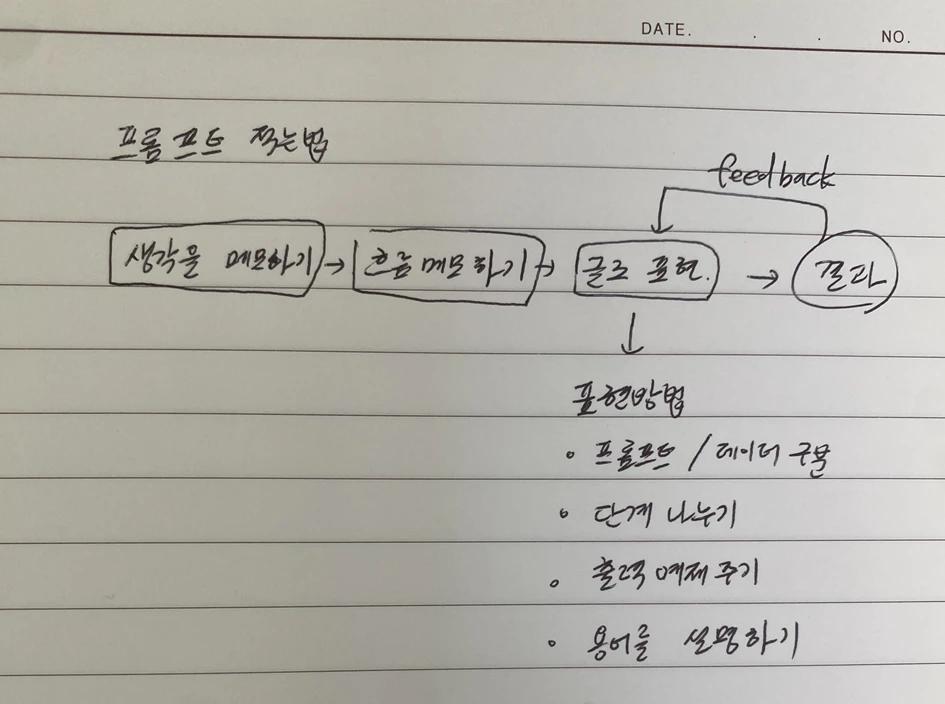 DATE. . . NO.
프롬프트 적는법
feedback
생각을 메모하기 → 흐름메모하기 → 글로 표현. → 결과
표현방법
• 프롬프트 / 데이터 구분
• 단계 나누기
• 출력 예제 주기
• 용어를 설명하기